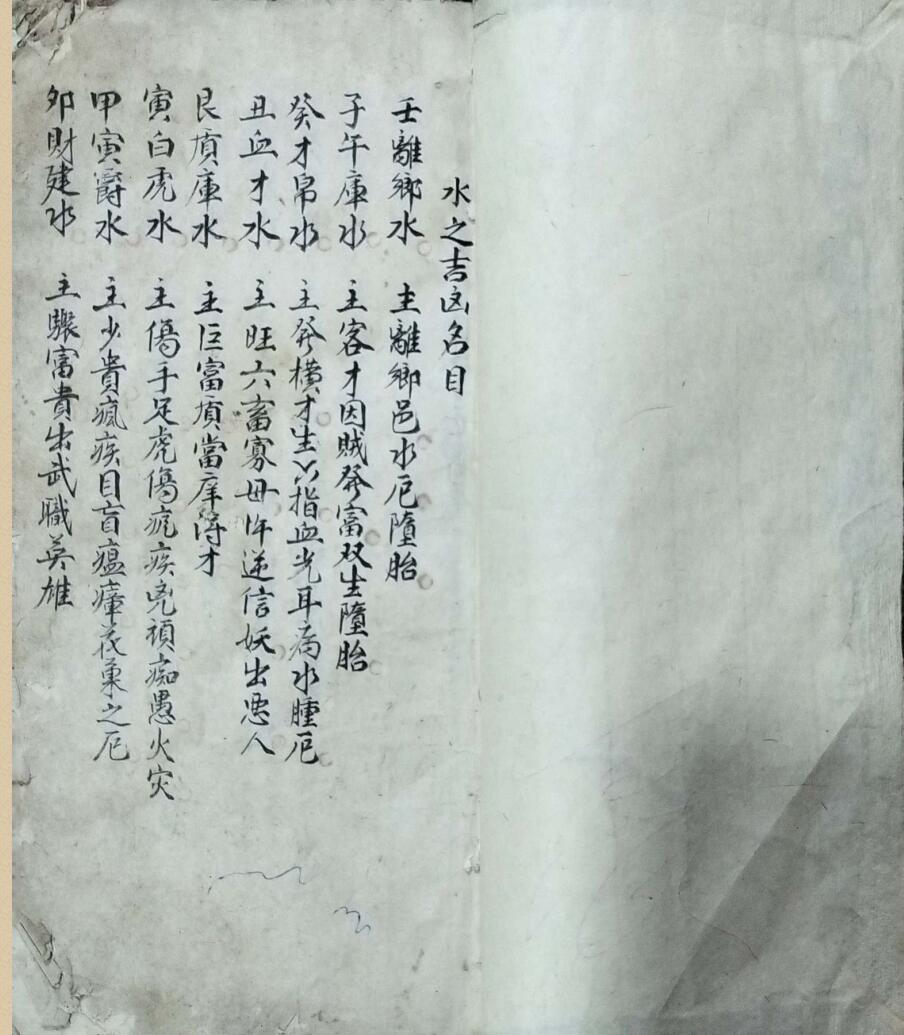 水之吉凶名目
壬離鄉水 主離鄉邑水厄墮胎
子午庫水 主客才因賊發富双生墮胎
癸才帛水 主發橫才生六指血光耳病水腫厄
丑血才水 主旺六畜寡母忤逆信妖出惡人
艮頂庫水 主巨富頂當庠得才
寅白虎水 主傷手足虎傷瘋疾兇頑痴愚火灾
甲寅爵水 主少貴瘋疾目盲瘟瘴花菓之厄
卯財建水 主驟富貴出武職英雄